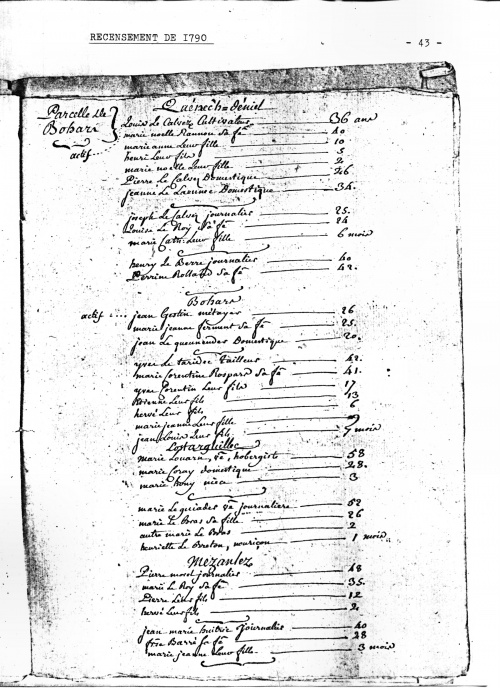 RECENSEMENT DE 1790
- 43 -
Parcelle de Bohars
Quénec'h=deniel
actif
Louis Le Calvez Cultivateur 36 ans
marie noelle Rannou Sa fe 40
marie anne leur fille 10
henri leur fils 5
marie noelle leur fille 2
Pierre Le Calvez Domestique 26
jeanne Le Domestique 34.
joseph Le Calvez journalier 25.
Louise Le Roy Sa fe 24
marie Cath: leur fille 6 mois
henry Le Berre journalier 40
Perrine Rolland Sa fe 42.
Bohars
actif jean Gestin métayer 26
marie jeanne ferment Sa fe 25.
jean Domestique 20.
yves Le tailleur 42.
marie Corentine Rospars Sa fe 41.
yves Corentin leur fils 17
Etienne leur fils 13
hervé leur fils 6
marie jeanne leur fille 9
jean Louis leur fils 7 mois
Lostarguilloc
marie Louarn, ve, hobergiste 58
marie foray domestique 28.
marie nièce 3
marie Le quiades ve journaliere 52
marie Le Bras Sa fille 26
autre marie Le Bras 2
henriette Le Breton, nouriçon 1 mois
Mezantez
Pierre journalier 48
marie Le Roy Sa fe 35.
Pierre leur fils 12
hervé leur fils 2.
jean marie huitric journalier 40
Barré Sa fe 28
marie jeanne leur fille 3 mois